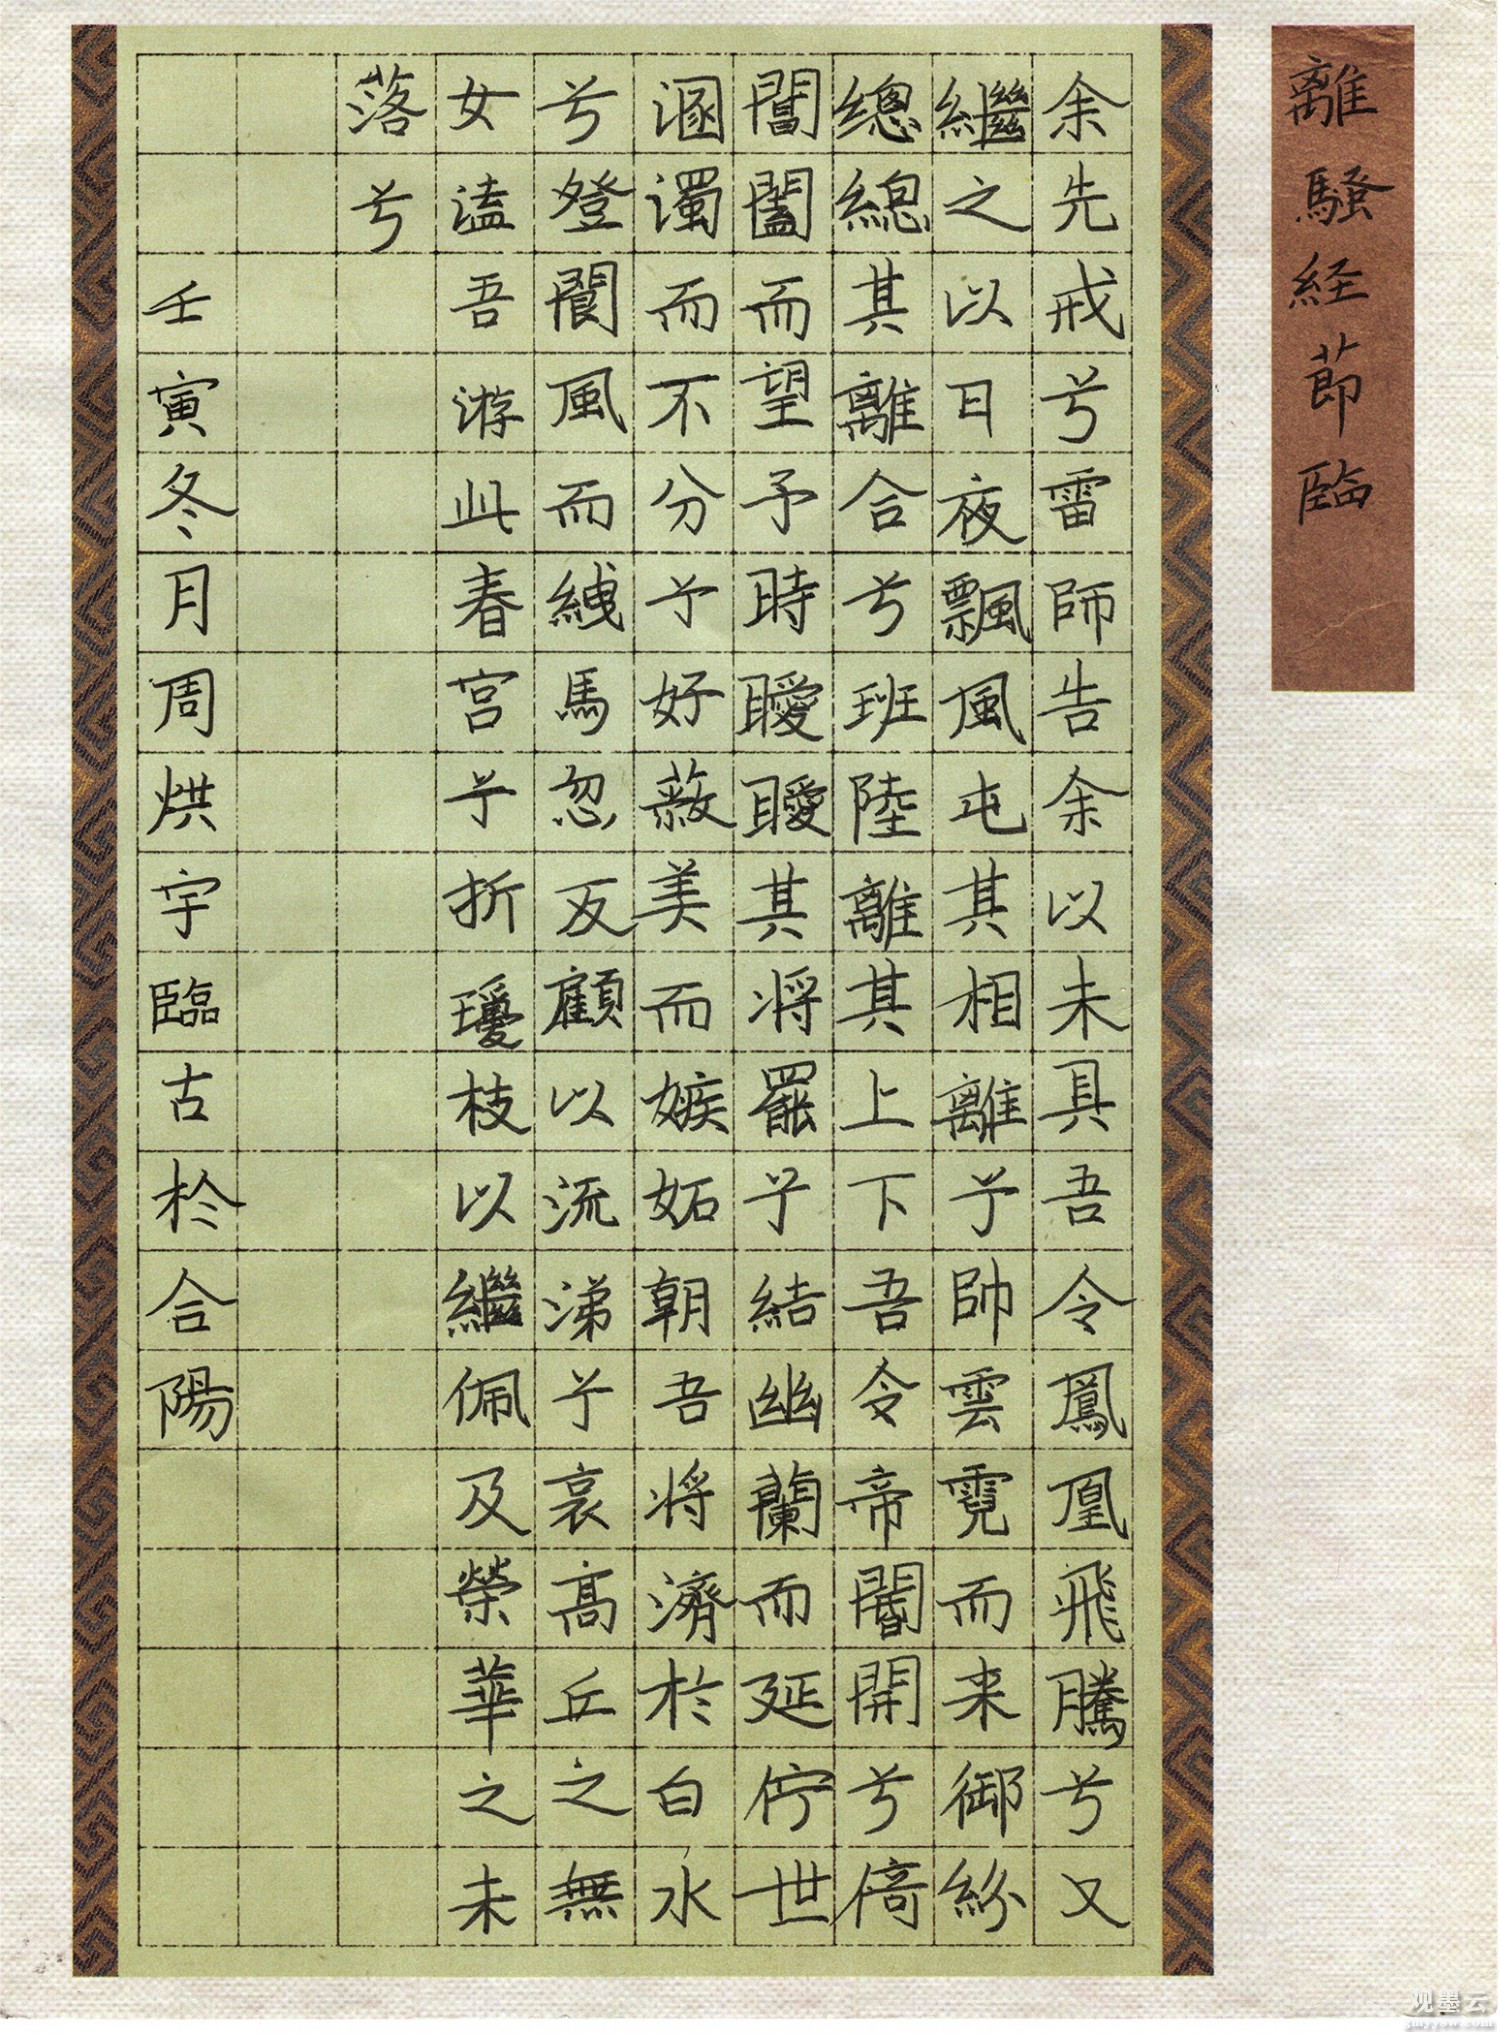 離騷経莭臨
余先戒兮雷師告余以未具吾令鳳凰飛騰兮又
繼之以日夜飄風屯其相離兮帥雲霓而来御紛
總總其離合兮班陸離其上下吾令帝閽開兮倚
閶闔而望予時曖曖其将罷兮結幽蘭而延佇世
溷濁而不分兮好蔽美而嫉妬朝吾将濟於白水
兮登閬風而緤馬忽反顧以流涕兮哀高丘之無
女溘吾游此春宮兮折瓊枝以繼佩及榮華之未
落兮
壬寅冬月周烘宇臨古於合陽
观墨云